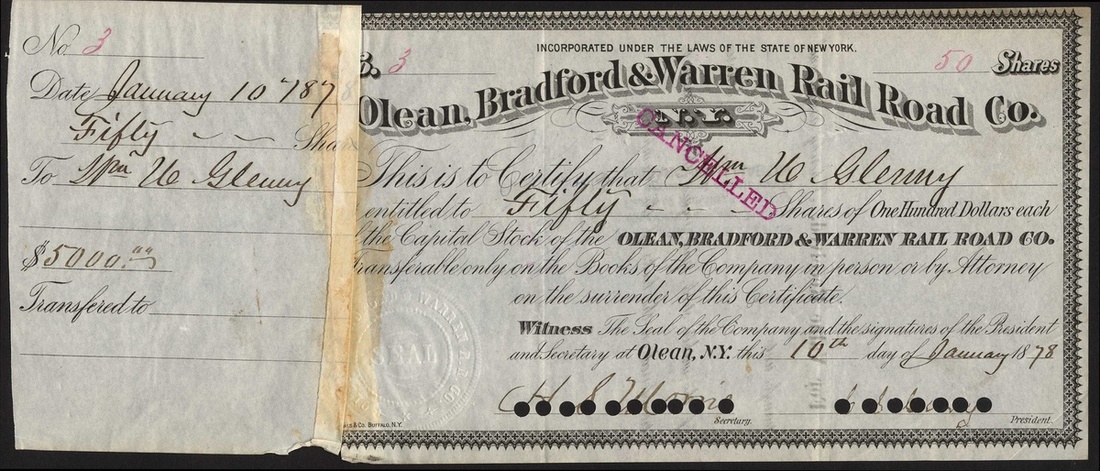 No. 3
Date January 10 1878
Fifty Shar
To Wm H Glenny
$5000.00
Transfered to
3
INCORPORATED UNDER THE LAWS OF THE STATE OF NEW YORK.
50 Shares
Olean, Bradford & Warren Rail Road Co.
N.Y.
CANCELLED
This is to Certify that Wm H Glenny
entitled to Fifty Shares of One Hundred Dollars each
the Capital Stock of the OLEAN, BRADFORD & WARREN RAIL ROAD CO.
Transferable only on the Books of the Company in person or by Attorney
on the surrender of this Certificate.
Witness The Seal of the Company and the signatures of the President
and Secretary at Olean, N.Y. this 10th day of January 1878
Secretary.
President.
& Co. BUFFALO, N.Y.
SEAL